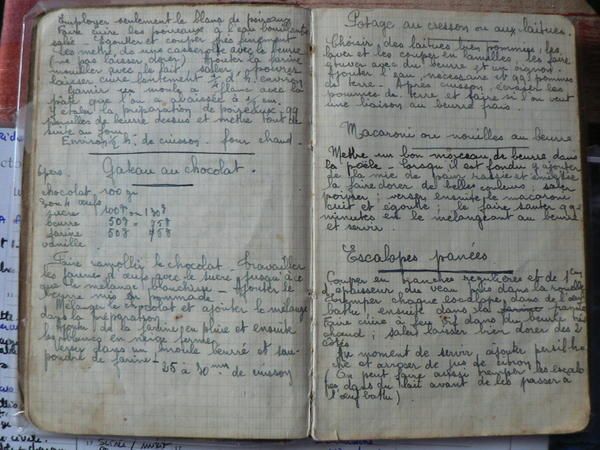 Employer seulement le blanc de poireaux
Faire cuire les poireaux à l'eau bouillante
salée. Egoutter et couper très finement
les mettre dans une casserole avec le beurre
(ne pas laisser dorer) Ajouter la farine
mouiller avec le lait, saler, poivrer
laisser cuire lentement d'h. environ
Garnir un moule à flanc avec la
pâte que l'on a abaissée à ½ cm.
Etaler la préparation de poireaux, qq
noisettes de beurre dessus et mettre tout de
suite au four
Environ h. de cuisson. four chaud.
6 pers. Gateau au chocolat.
chocolat, 100 gr
3 ou 4 œufs
sucre 100g ou 130g
beurre 50g = 75g
farine 50g = 75g
vanille
Faire ramollir le chocolat. Travailler
les jaunes d'œufs avec le sucre jusqu'à ce
que le mélange blanchisse. Ajouter le
beurre mis en pommade
Mélanger le chocolat et ajouter le mélange
dans la préparation
Ajouter de la farine en pluie et ensuite
les blancs en neige fermes
Verser dans un moule beurré et sau-
poudré de farine.
25 à 30 mns de cuisson
Potage au cresson ou aux laitues.
Choisir des laitues bien pommées, les
laver et les couper en lamelles, les faire
avec du beurre et un oignon.
Ajouter l'eau nécessaire et qq pommes
de terre. Après cuisson, écraser les
pommes de terre et faire si l'on veut
une liaison au beurre frais
Macaroni ou nouilles au beurre
Mettre un bon morceau de beurre dans
la poêle. lorsqu'il est fondu y ajouter
de la mie de pain rassie et émiettée
la faire dorer de belles couleurs; saler
poivrer; verser ensuite le macaroni
cuit et égoutté; le faire sauter qq
minutes en le mélangeant au beurre
et servir.
Escalopes panées
Couper en tranches régulières et de 1 cm
d'épaisseur un veau pris dans la rouelle
tremper chaque escalope dans de l'œuf
battu ensuite dans la panure
Faire cuire à feu vif dans du beurre très
chaud; saler; laisser bien dorer des 2
côtés
Au moment de servir, ajouter persil ha-
ché et arroser de jus de citron
(On peut faire aussi tremper les escalo
pes dans du lait avant de les passer à
l'œuf battu)